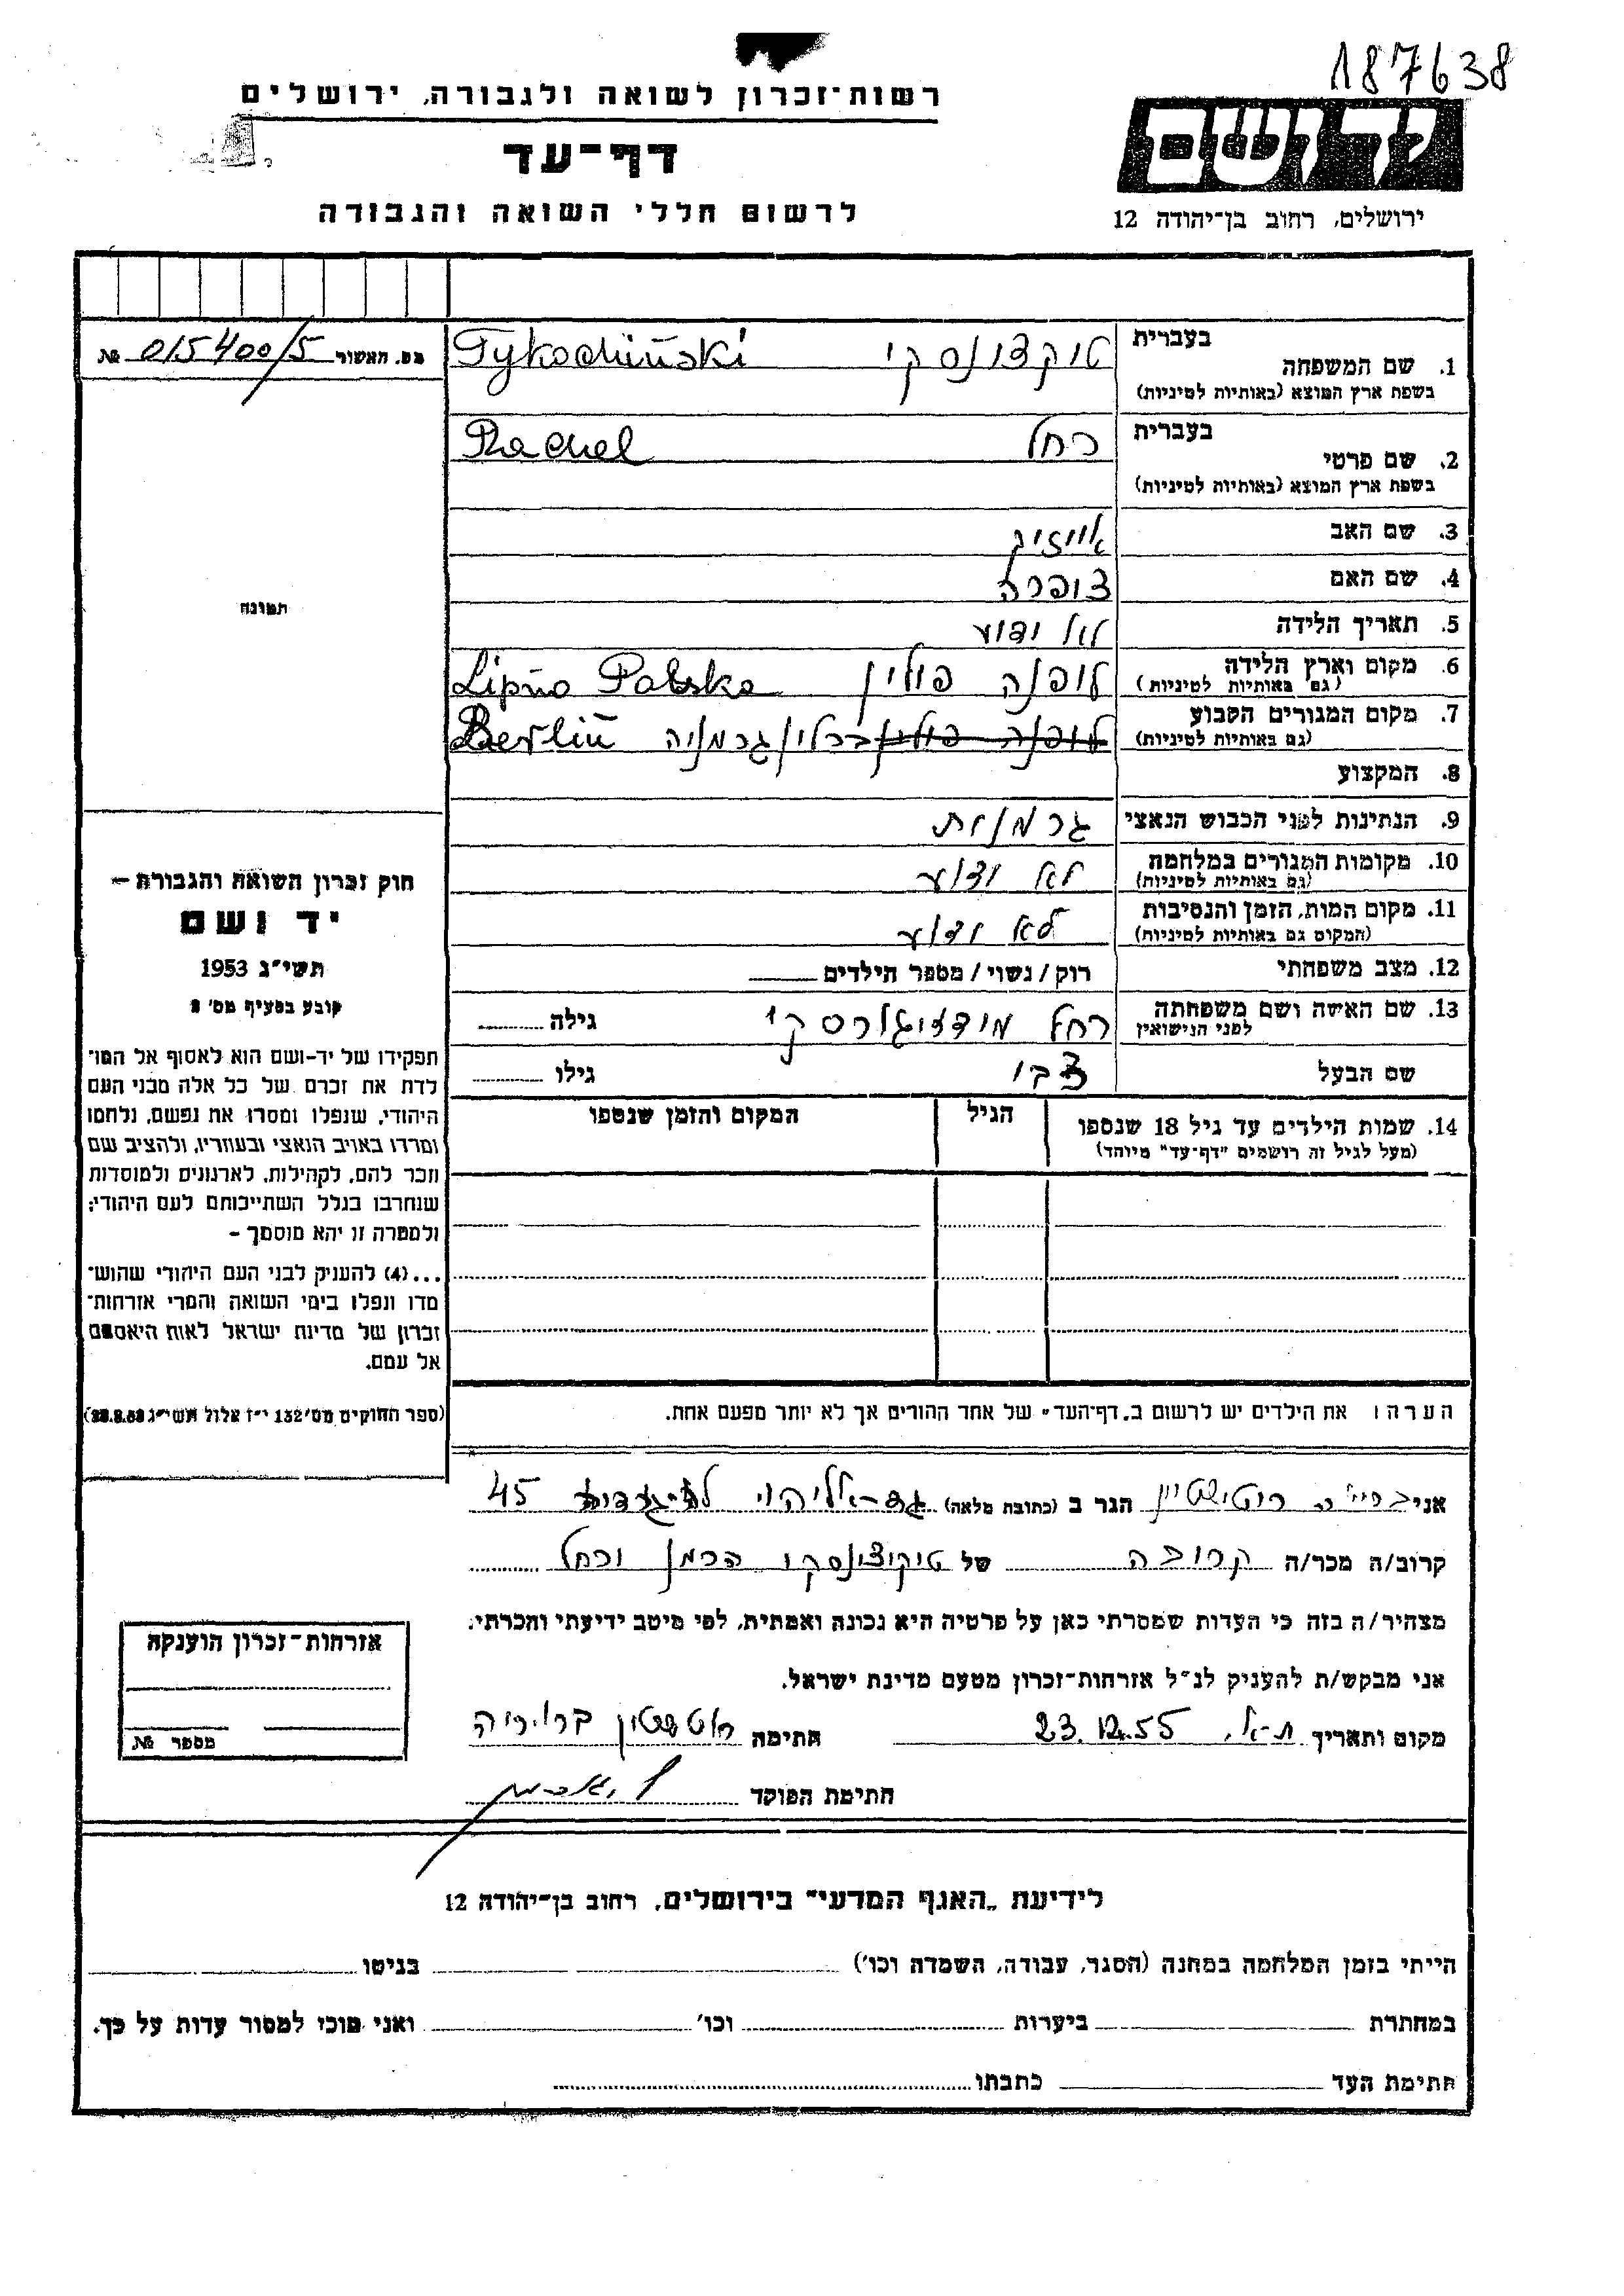 187638
רשות־זכרון לשואה ולגבורה, ירושלים
דף־עד
לרשום חללי השואה והגבורה
יד ושם
ירושלים, רחוב בן־יהודה 12
מס. האשור 015400/5 №
בעברית
1. שם המשפחה טוקצונסקי Tykochiński
בשפת ארץ המוצא (באותיות לטיניות)
בעברית
2. שם פרטי רחל Rachel
בשפת ארץ המוצא (באותיות לטיניות)
3. שם האב אייזיק
4. שם האם צופרה
תמונה
5. תאריך הלידה לא ידוע
6. מקום וארץ הלידה ליפנה פולין Lipno Polska
(גם באותיות לטיניות)
7. מקום המגורים הקבוע ליפנה פולין ברלין גרמניה Berlin
(גם באותיות לטיניות)
8. המקצוע
9. הנתינות לפני הכבוש הנאצי גרמנית
10. מקומות המגורים במלחמה לא ידוע
(גם באותיות לטיניות)
11. מקום המות, הזמן והנסיבות לא ידוע
(המקום גם באותיות לטיניות)
12. מצב משפחתי רוק / נשוי / מספר הילדים
13. שם האישה ושם משפחתה רחל גילה
לפני הנישואין
שם הבעל צבי גילו
14. שמות הילדים עד גיל 18 שנספו הגיל המקום והזמן שנספו
(מעל לגיל זה רושמים "דף־עד" מיוחד)
חוק זכרון השואה והגבורה –
יד ושם
תשי"ג 1953
קובע בסעיף מס' 2
תפקידו של יד-ושם הוא לאסוף אל המו־
לדת את זכרם של כל אלה מבני העם
היהודי, שנפלו ומסרו את נפשם, נלחמו
ומרדו באויב הנאצי ובעוזריו, ולהציב שם
וזכר להם, לקהילות, לארגונים ולמוסדות
שנחרבו בגלל השתייכותם לעם היהודי;
ולמטרה זו יהא מוסמך –
...(4) להעניק לבני העם היהודי שהוש־
מדו ונפלו בימי השואה והמרי אזרחות־
זכרון של מדינת ישראל לאות היאספם
אל עמם.
(ספר החוקים מס' 132 י"ז אלול תשי"ג 28.8.53)
הערה: את הילדים יש לרשום ב"דף־העד" של אחד ההורים אך לא יותר מפעם אחת.
אני רוטשטיין הגר ב (כתובת מלאה) 45
קרוב/ה מכר/ה קרובה של טיקוצינסקי הרמן ורחל
מצהיר/ה בזה כי העדות שמסרתי כאן על פרטיה היא נכונה ואמתית, לפי מיטב ידיעתי והכרתי.
אני מבקש/ת להעניק לנ"ל אזרחות־זכרון מטעם מדינת ישראל.
מקום ותאריך ת-א, 23.12.55 חתימה רוטשטין
חתימת הפוקד
אזרחות־זכרון הוענקה
מספר №
לידיעת "האגף המדעי" בירושלים, רחוב בן־יהודה 12
הייתי בזמן המלחמה במחנה (הסגר, עבודה, השמדה וכו') בגיטו
במחתרת ביערות וכו' ואני מוכן למסור עדות על כך.
חתימת העד כתבתו